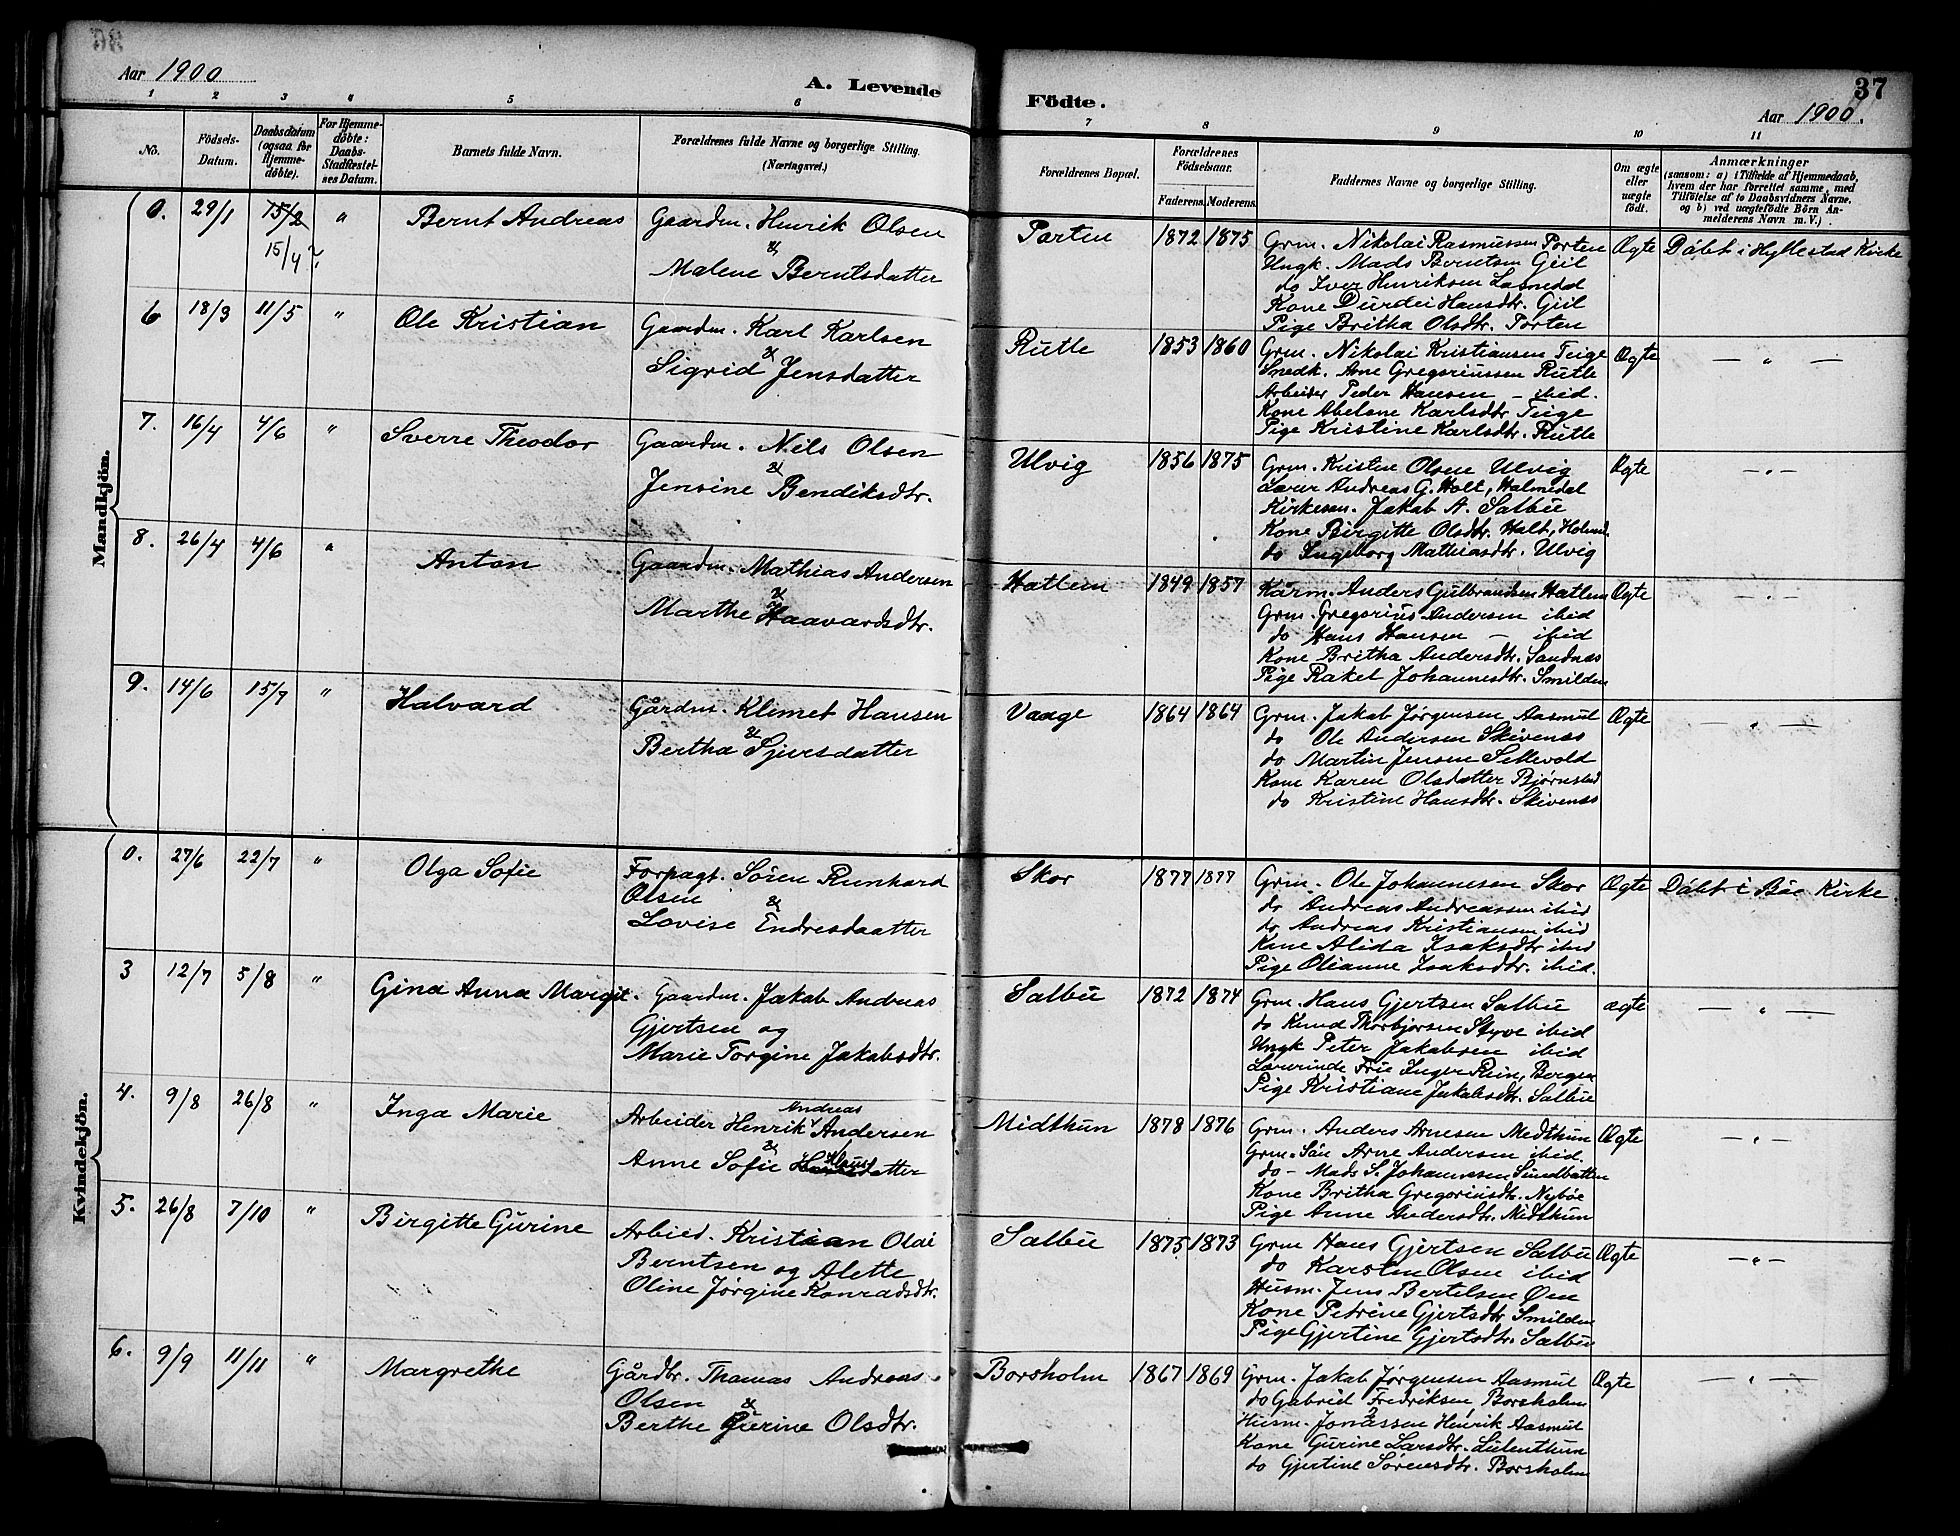 Aar 1900
A. Levende
Födte.
Aar 1900.
37
1 2 3 4 5 6 7 8 9 10 11
No.
Födsels-
Datum.
Daabsdatum
(ogsaa for
Hjemme-
döbte).
For Hjemme-
döbte:
Daabs-
Stadfæstel-
ses Datum.
Barnets fulde Navn.
Forældrenes fulde Navne og borgerlige Stilling.
(Næringsvei.)
Forældrenes Bopæl.
Forældrenes
Födselsaar.
Faderens. Moderens.
Faddernes Navne og borgerlige Stilling.
Om ægte
eller
uægte
födt.
Anmærkninger
(saasom: a) i Tilfælde af Hjemmedaab,
hvem der har forrettet samme, med
Tilföielse af to Daabsvidners Navne,
og b) ved uægtefödte Börn An-
melderens Navn m. V.).
Mandkjön.
0. 29/1 15/2 " Bernt Andreas Gaardm. Henrik Olsen
15/4?
&
Malene Berntsdatter
Porten 1872 1875 Grm. Nikolai Rasmussen Porten Ægte Döbt i Hyllestad Kirke
Ungk. Mads Berntsen Geil
do Iver Henriksen
Kone Durdei Hansdtr. Geil
Pige Britha Olsdtr. Porten
6 18/3 11/5 " Ole Kristian Gaardm. Karl Karlsen
&
Sigrid Jensdatter
Rutle 1853 1860 Grm. Nikolai Kristiansen Teige Ægte — " —
Snedk. Arne Gregoriussen Rutle
Arbeider Peder Hansen — ibid.
Kone Abelone Karlsdtr Teige
Pige Kristine Karlsdtr. Rutle
7. 16/4 4/6 " Sverre Theodor Gaardm. Niels Olsen
&
Jensine Bendiksdtr.
Ulvig 1856 1875 Grm. Kristen Olsen Ulvig Ægte — " —
Lærer Andreas G. Holt, Holmedal
Kirkesn. Jakob A. Salbu
Kone Birgitte Olsdtr. Holt, Holmed.
do Ingeborg Mathiasdtr. Ulvig
8. 26/4 4/6 " Anton Gaardm. Mathias Andersen
&
Marthe Haavardsdtr.
Hatlem 1849 1857 Kårm. Anders Gulbrandsen Hatlem Ægte — " —
Grm. Gregorius Andersen ibid
do Hans Hansen — ibid
Kone Britha Andersdtr. Sandnæs
Pige Rakel Johannesdtr. Smilden
9. 14/6 15/7 " Halvard Gårdm. Klimet Hansen
&
Bertha Sjursdatter
Vaage 1864 1864 Grm. Jakob Jørgensen Aasmul Ægte — " —
do Ole Andersen Skivenæs
do Martin Jensen Sellevold
Kone Karen Olsdatter Bjørnstad
do Kristine Hansdtr. Skivenæs
Kvindekjön.
0. 27/6 22/7 " Olga Sofie Forpagt. Sören Reinhard
Olsen
&
Lovise Endresdaatter
Skor 1877 1877 Grm. Ole Johannesen Skor Ægte Döbt i Böe Kirke.
do Andreas Andreassen ibid
do Andreas Kristiansen ibid
Kone Alida Isaksdtr ibid
Pige Olianne Isaksdtr. ibid.
3 12/7 5/8 " Gina Anna Margit. Gaardm. Jakob Andreas
Gjertsen og
Marie Torgine Jakobsdtr.
Salbu 1872 1874 Grm. Hans Gjertsen Salbu ægte — " —
do Knud Thorbjørsen Styve ibid
Ungk Peter Jakobsen ibid
Lærerinde Frk Inger Rein, Bergen
Pige Kristiane Jakobsdtr. Salbu
4. 9/8 26/8 " Inga Marie Arbeider Henrik Andreas Andersen
&
Anne Sofie datter
Midthun 1878 1876 Grm. Anders Arnesen Medthun Ægte — " —
Grm.Sön Arne Andersen ibid.
do - Mads S. Johannesen Sundbotten
Kone Britha Gregoriusdtr. Nybøe
Pige Anne Andersdtr. Midthun
5. 26/8 7/10 " Birgitte Gurine Arbied. Kristian Olai
Berntsen og Alette
Oline Jørgine Konradsdtr.
Salbu 1875 1873 Grm Hans Gjertsen Salbu Ægte — " —
do Karsten Olsen ibid
Husm. Jens Bertelsen Øen
Kone Petrine Gjertsdtr Smilden
Pige Gjertine Gjertsdtr. Salbu
6. 9/9 11/11 " Margrethe Gårdbr. Thomas Andreas
Olsen
&
Berthe Gurine Olsdtr.
Borsholm 1867 1869 Grm. Jakob Jørgensen Aasmul Ægte — " —
do Gabriel Fredriksen Borsholm
Husm. Jonassen Henrik Aasmul
Kone Gurine Larsdtr.
do Gjertine Sørensdtr. Borsholm